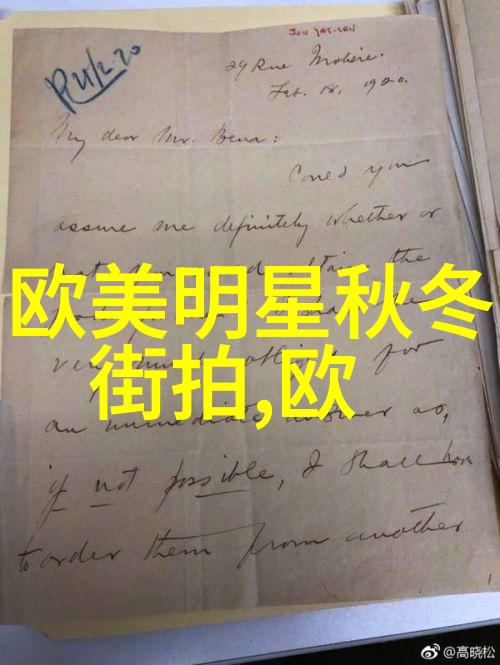 SUN YAT-SEN
R 21/2.20
29 Rue Molière.
Feb. 18, 1920.
My dear Mr. Bena:
Could you
assure me definitely whether or
not
欧美明星秋冬
街拍,欧
very for
an immediate answer as,
if not possible, I shall have
to order them from another
@高晓松